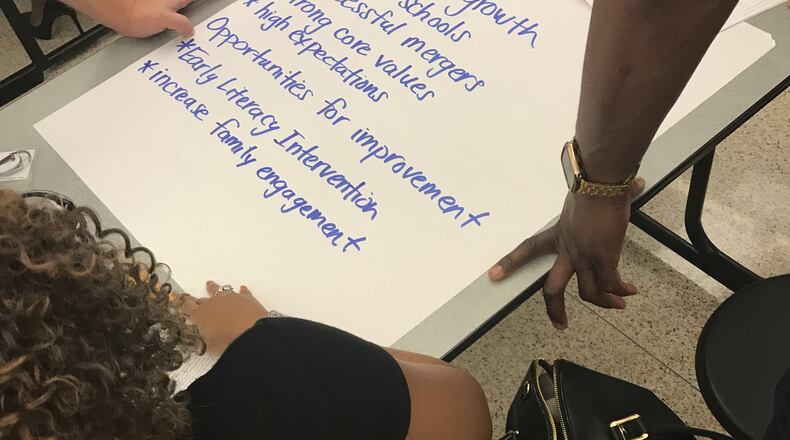 growth
schools
successful mergers
strong core values
* high expectations
Opportunities for improvement
*Early Literacy Intervention
*increase family engagement